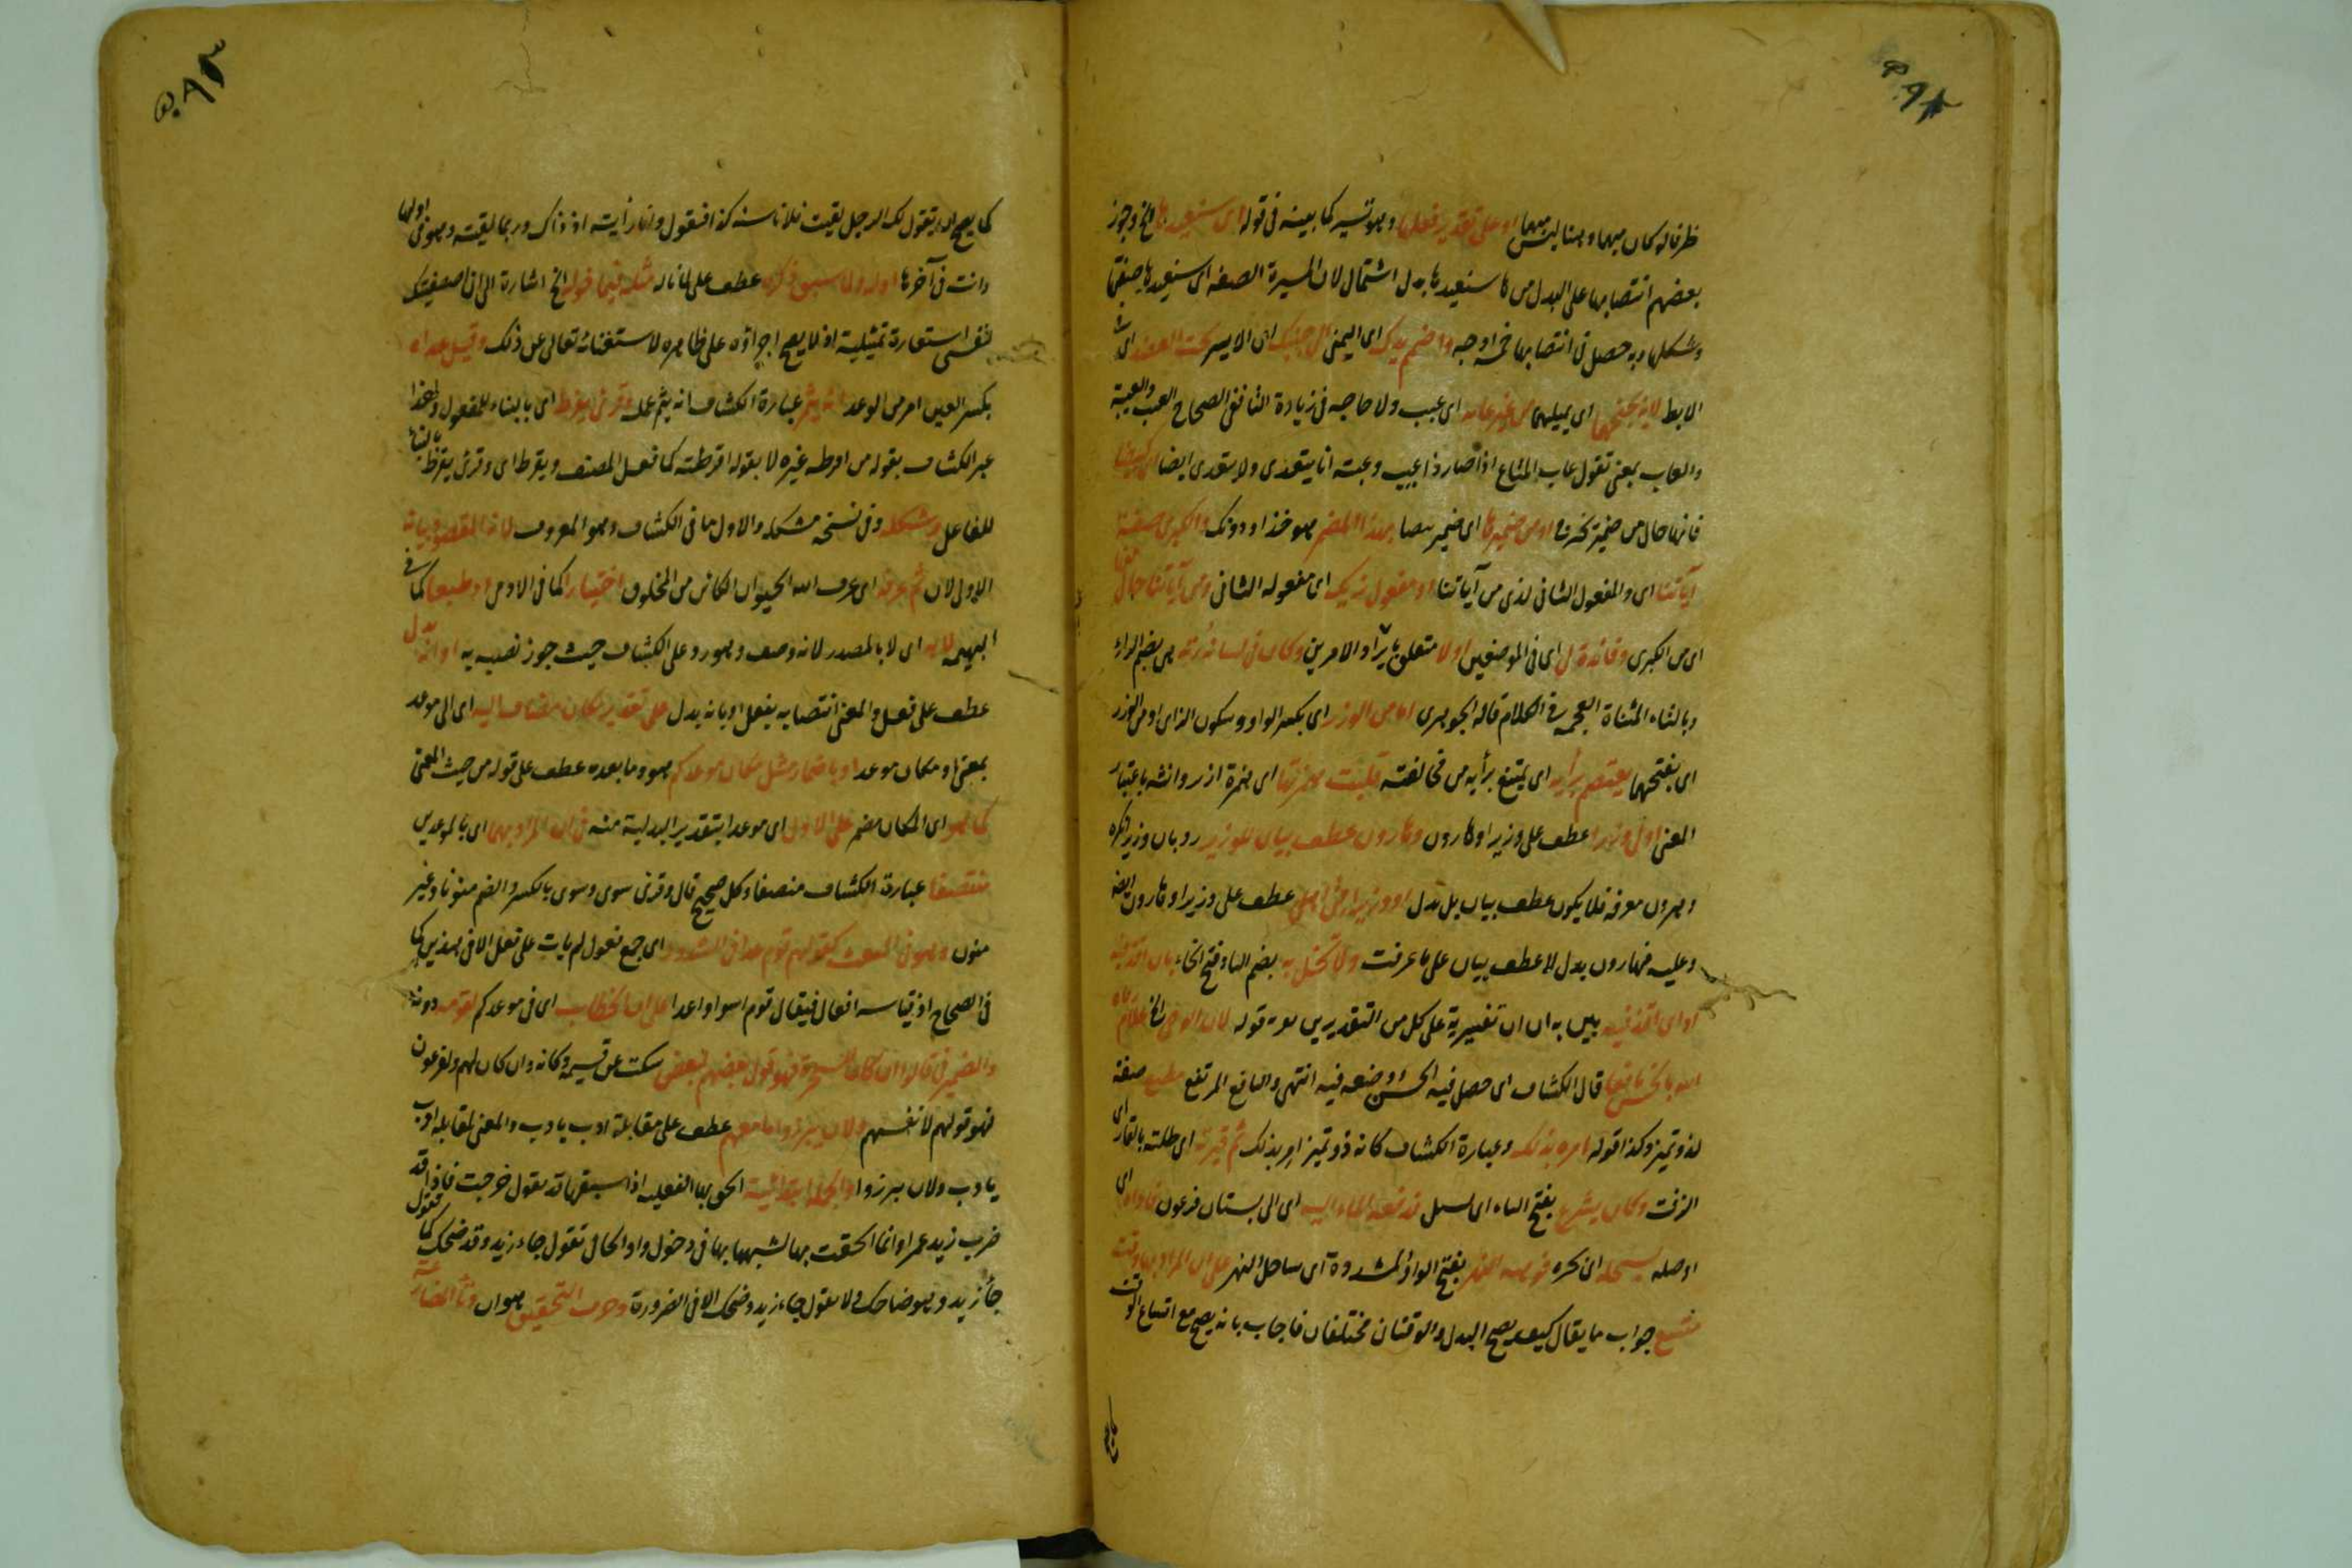 ظرفا له كان مبهما وهنا ليس مبهما او على تقدير فعلها وهو تسير كما بينه فى قوله اى سنعيدها الخ وجوز
بعضهم انتصابها على البدل من ها سنعيدها بدل اشتمال لان السيرة الصفة اى سنعيدها صفتها
وشكلها وبه حصل فى انتصابها خمسة اوجه واضمم يدك اى اليمنى الى جنبك اى الايسر تحت العضد اى
الابط لانه يجنحهما اى يميلهما من غير عاهة اى عيب ولا حاجة فى زيادة الثانى ففى الصحاح العيب والعيبة
والعاب بمعنى تقول عاب المتاع اذا صار ذا عيب وعبته انا يتعدى ولا يتعدى ايضا
فانها حال من ضمير تخرج او من ضميرها اى ضمير بيضا بهذا المضمر وهو خذ او دونك والكبرى صفة
آياتنا اى والمفعول الثانى لنرى من آياتنا او مفعول نريك اى مفعوله الثانى ومن آياتنا حال منها
اى من الكبرى وفائدة لى اى فى الموضعين اولا متعلق بايراد الامرين وكان فى لسانه رتة هى بضم الراء
وبالتاء المثناة العجمة فى الكلام قاله الجوهرى اما من الوزر اى بكسر الواو وسكون الزاى او من الوزر
اى بفتحهما يعتصم برأيه اى يمتنع برأيه من مخالفته قلبت همزتها اى همزة ازر وانثه باعتبار
المعنى اولى وزيرا عطف على وزيرا وهارون وهارون عطف بيان للوزير رد بان وزيرا نكرة
وهرون معرفة فلا يكون عطف بيان بل بدل او وزيرا من اهلى عطف على وزيرا وهارون ايضا
وعليه فهارون بدل لا عطف بيان على ما عرفت ولا تخل به بضم الياء وفتح الخاء بان اقذفيه
او اى اقذفيه بين به ان ان تفسيرية على كل من التقديرين قوله لان الوحى الخ
قال الكشاف اى حصل فيه الحسن ووضعه فيه انتهى واليافع المرتفع مطيع صفة
لذو تميز وكذا قوله امره بذلك وعبارة الكشاف كانه ذو تميز امر بذلك ثم قيرته اى طلته بالقار اى
الزفت وكان يشرع بفتح الياء اى يسيل فدفعه الماء اليه اى الى بستان فرعون فاداه اى
اوصله يسحله اى نحره فوهة النهر بفتح الواو المشددة اى ساحل النهر على ان المراد بها وقت
متسع جواب ما يقال كيف يصح البدل والوقتان مختلفان فاجاب بانه يصح مع اتساع الوقت
كما يصح ان يقول لك الرجل لقيت فلانا سنة كذا فتقول وانا رأيته اذ ذاك وربما لقيته وهو فى اولها
وانت فى آخرها اوله ولما سبق ذكره عطف على لما ناله مثله فيما خوله الخ اشارة الى ان اصطنعتك
لنفسى استعارة تمثيلية اذ لا يصح اجراؤه على ظاهره لاستغنائه تعالى عن ذلك وقيل عداه
بكسر العين امر من الوعد انه يثمر عبارة الكشاف انه يثم عمله وقرئ يفرط اى بالبناء للمفعول ولهذا
عبر الكشاف بقوله من افرطه غيره لا بقوله افرطته كما فعل المصنف ويفرط اى وقرئ يفرط بالبناء
للفاعل وشكله وفى نسخة مشكله والاول ما فى الكشاف وهو المعروف لانه المقصود بيانه
الاول لان ثم عرفه اى عرف الله الحيوان الكائن من المخلوق اختيارا كما فى الادمى او طبعا كما فى
البهيمة لابه اى لا بالمصدر لانه وصف وهو رد على الكشاف حيث جوز نصبه به او انه بدل
عطف على فعل والمعنى انتصابه بفعل او بانه بدل على تقدير مكان مضاف اليه اى الى موعد
بمعنى او مكان موعد او باضمار مثل مكان موعدكم هو وما بعده عطف على قوله من حيث المعنى
كما هو اى المكان مضمر على الاول اى موعدا بتقدير البدلية منه فى ان المراد بهما اى بالموعدين
منتصفا عبارة الكشاف منصفا وكل صحيح قال وقرئ سوى وسوى بالكسر والضم منونا وغير
منون وهو فى النعت كقولهم قوم عدا فى الشذوذ اى جمع فعول لم يات على فعل الا فى هذين كما
فى الصحاح اذ قياسه افعال فيقال قوم اسواو اعدا على ان الخطاب اى فى موعدكم لقومه دونه
والضمير فى قالوا ان كان للسحرة فهو قول بعضهم لبعض سكت عن قسيمه وكانه وان كان لهم ولفرعون
فهو قولهم لانفسهم ولان يبرزوا ما معهم عطف على مقابلة ادب بادب والمعنى لمقابلة ادب
بادب ولان يبرزوا والجملة ابتدائية الحق بها الفعلية اذا سبقها قد تقول خرجت فاذا قد
ضرب زيد عمرا وانما الحقت بها لشبهها بها فى دخول واو الحال تقول جاء زيد وقد ضحك كما تقول
جاء زيد وهو ضاحك ولا تقول جاء زيد وضحك الا فى الضرورة وحرف التحقيق هو ان وتاء المضارعة